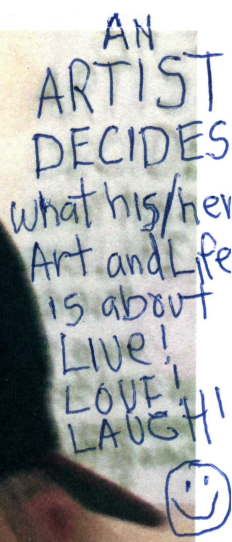 AN
ARTIST
DECIDES
what his/her
Art and Life
is about
LIVE!
LOVE!
LAUGH!